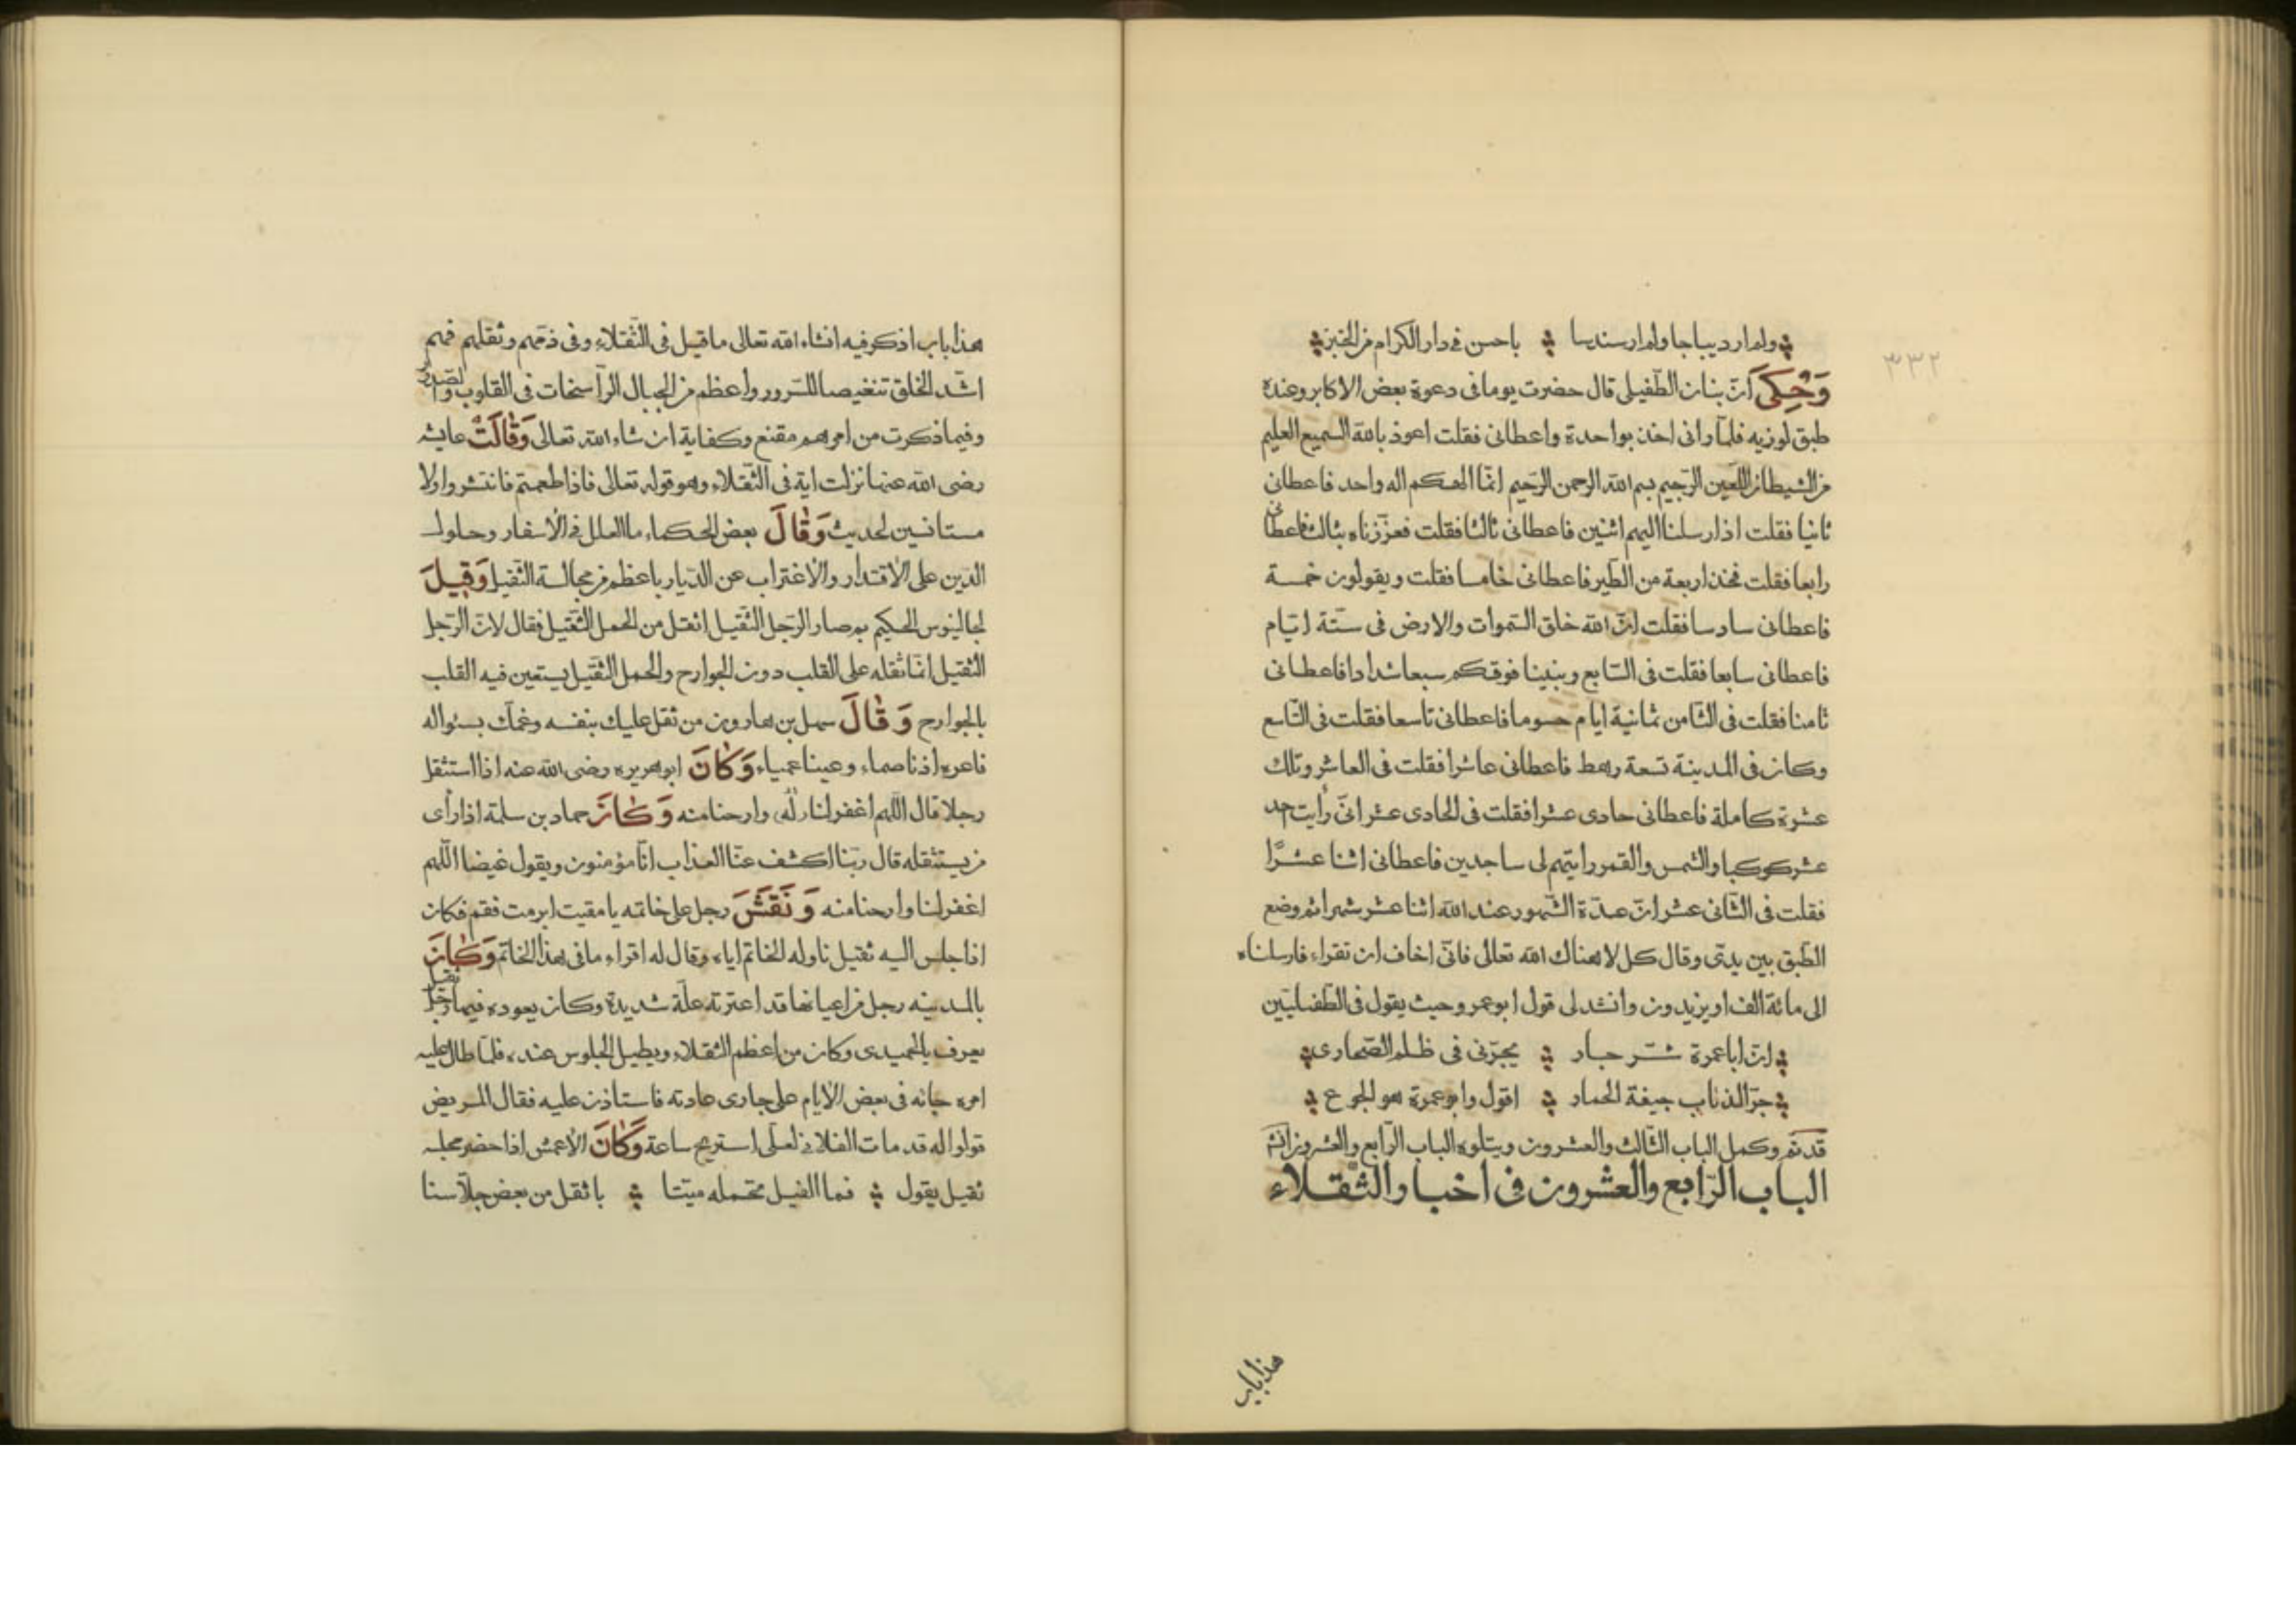 ولم ار ديباجا ولم ار سندسا ؞ باحسن فى دار الكرام من الخبز
٣٣٢
وَحُكِىَ انّ بنان الطّفيلى قال حضرت يوما فى دعوة بعض الاكابر وعنده
طبق لوزيه فلمّا رانى اخذ بواحدة واعطانى فقلت اعوذ بالله السميع العليم
من الشيطان اللّعين الرّجيم بسم الله الرحمن الرّحيم انمّا الهكم اله واحد فاعطانى
ثانيا فقلت اذ ارسلنا اليهم اثنين فاعطانى ثالثا فقلت فعزّزناه بثالث فاعطانى
رابعا فقلت فخذ اربعة من الطّير فاعطانى خامسا فقلت ويقولون خمسة
فاعطانى سادسا فقلت انّ الله خلق السّموات والارض فى ستّة ايّام
فاعطانى سابعا فقلت فى السّابع وبنينا فوقكم سبعا شدادا فاعطانى
ثامنا فقلت فى الثّامن ثمانية ايام حسوما فاعطانى تاسعا فقلت فى التّاسع
وكان فى المدينة تسعة رهط فاعطانى عاشرا فقلت فى العاشر وتلك
عشرة كاملة فاعطانى حادى عشرا فقلت فى الحادى عشر انّى رأيت احد
عشر كوكبا والشمس والقمر رايتهم لى ساجدين فاعطانى اثنا عشرًا
فقلت فى الثّانى عشر انّ عدّة الشّهور عند الله اثنا عشر شهرا ثم وضع
الطّبق بين يدىّ وقال كل لا هناك الله تعالى فانّى اخاف ان تقراء فارسلناه
الى مائة الف او يزيدون وانشد لى قول ابو عمرو حيث يقول فى الطّفيليّين
انّ ابا عمرة شرّ جار ؞ يجرّنى فى ظلم الصّحارى
جرّ الذئاب جيفة الحمار ؞ اقول وابو عمرة هو الجوع
قد تمّ وكمل الباب الثّالث والعشرون ويتلوه الباب الرّابع والعشرون
الباب الرّابع والعشرون فى اخبار الثّقلاء
هذا باب
هذا باب اذكر فيه انشاء الله تعالى ما قيل فى الثّقلاء وفى ذمّهم وثقلهم فهم
اشدّ الخلق تنغيصا للسّرور واعظم من الجبال الرّاسخات فى القلوب والصّدور
وفيما ذكرت من امرهم مقنع وكفاية ان شاء الله تعالى وَقَالَتْ عايشه
رضى الله عنها نزلت اية فى الثّقلاء وهو قوله تعالى فاذا طعمتم فانتشروا ولا
مستانسين لحديث وَقَالَ بعض الحكماء ما العلل فى الأسفار وحلول
الدّين على الأقتدار والأغتراب عن الدّيار باعظم من مجالسة الثّقيل وَقِيلَ
لجالينوس الحكيم بم صار الرّجل الثّقيل اثقل من الحمل الثّقيل فقال لانّ الرّجل
الثّقيل انمّا ثقله على القلب دون الجوارح والحمل الثّقيل يستعين فيه القلب
بالجوارح وَقَالَ سهل بن هارون من ثقل عليك بنفسه وغمّك بسئواله
فاعره اذنا صماء وعينا عمياء وَكَانَ ابو هريره رضى الله عنه اذا استثقل
رجلا قال اللّهم اغفر لنا وله وارحنا منه وَكَانَ حماد بن سلمة اذا رأى
من يستثقله قال ربّنا اكشف عنّا العذاب انّا مؤمنون ويقول غيضا اللّهم
اغفر لنا وارحنا منه وَنَقَشَ رجل على خاتمه يا مقيت ابرمت فقم فكان
اذا جلس اليه ثقيل ناوله الخاتم اياه وقال له اقراء ما فى هذا الخاتم وَكَانَ
بالمدينه رجل من اعيانها قد اعترته علّة شديدة وكان يعوده فيما رجل ثقيل
يعرف بالحميدى وكان من اعظم الثقلاء ويطيل الجلوس عنده فلمّا طال عليه
امره جائه فى بعض الأيام على جارى عادته فاستاذن عليه فقال المريض
قولوا له قد مات الفلان لعلّى استريح ساعة وَكَانَ الأعمش اذا حضر مجلسه
ثقيل يقول ؞ فما الفيل تحمله ميّتا ؞ باثقل من بعض جلّاسنا